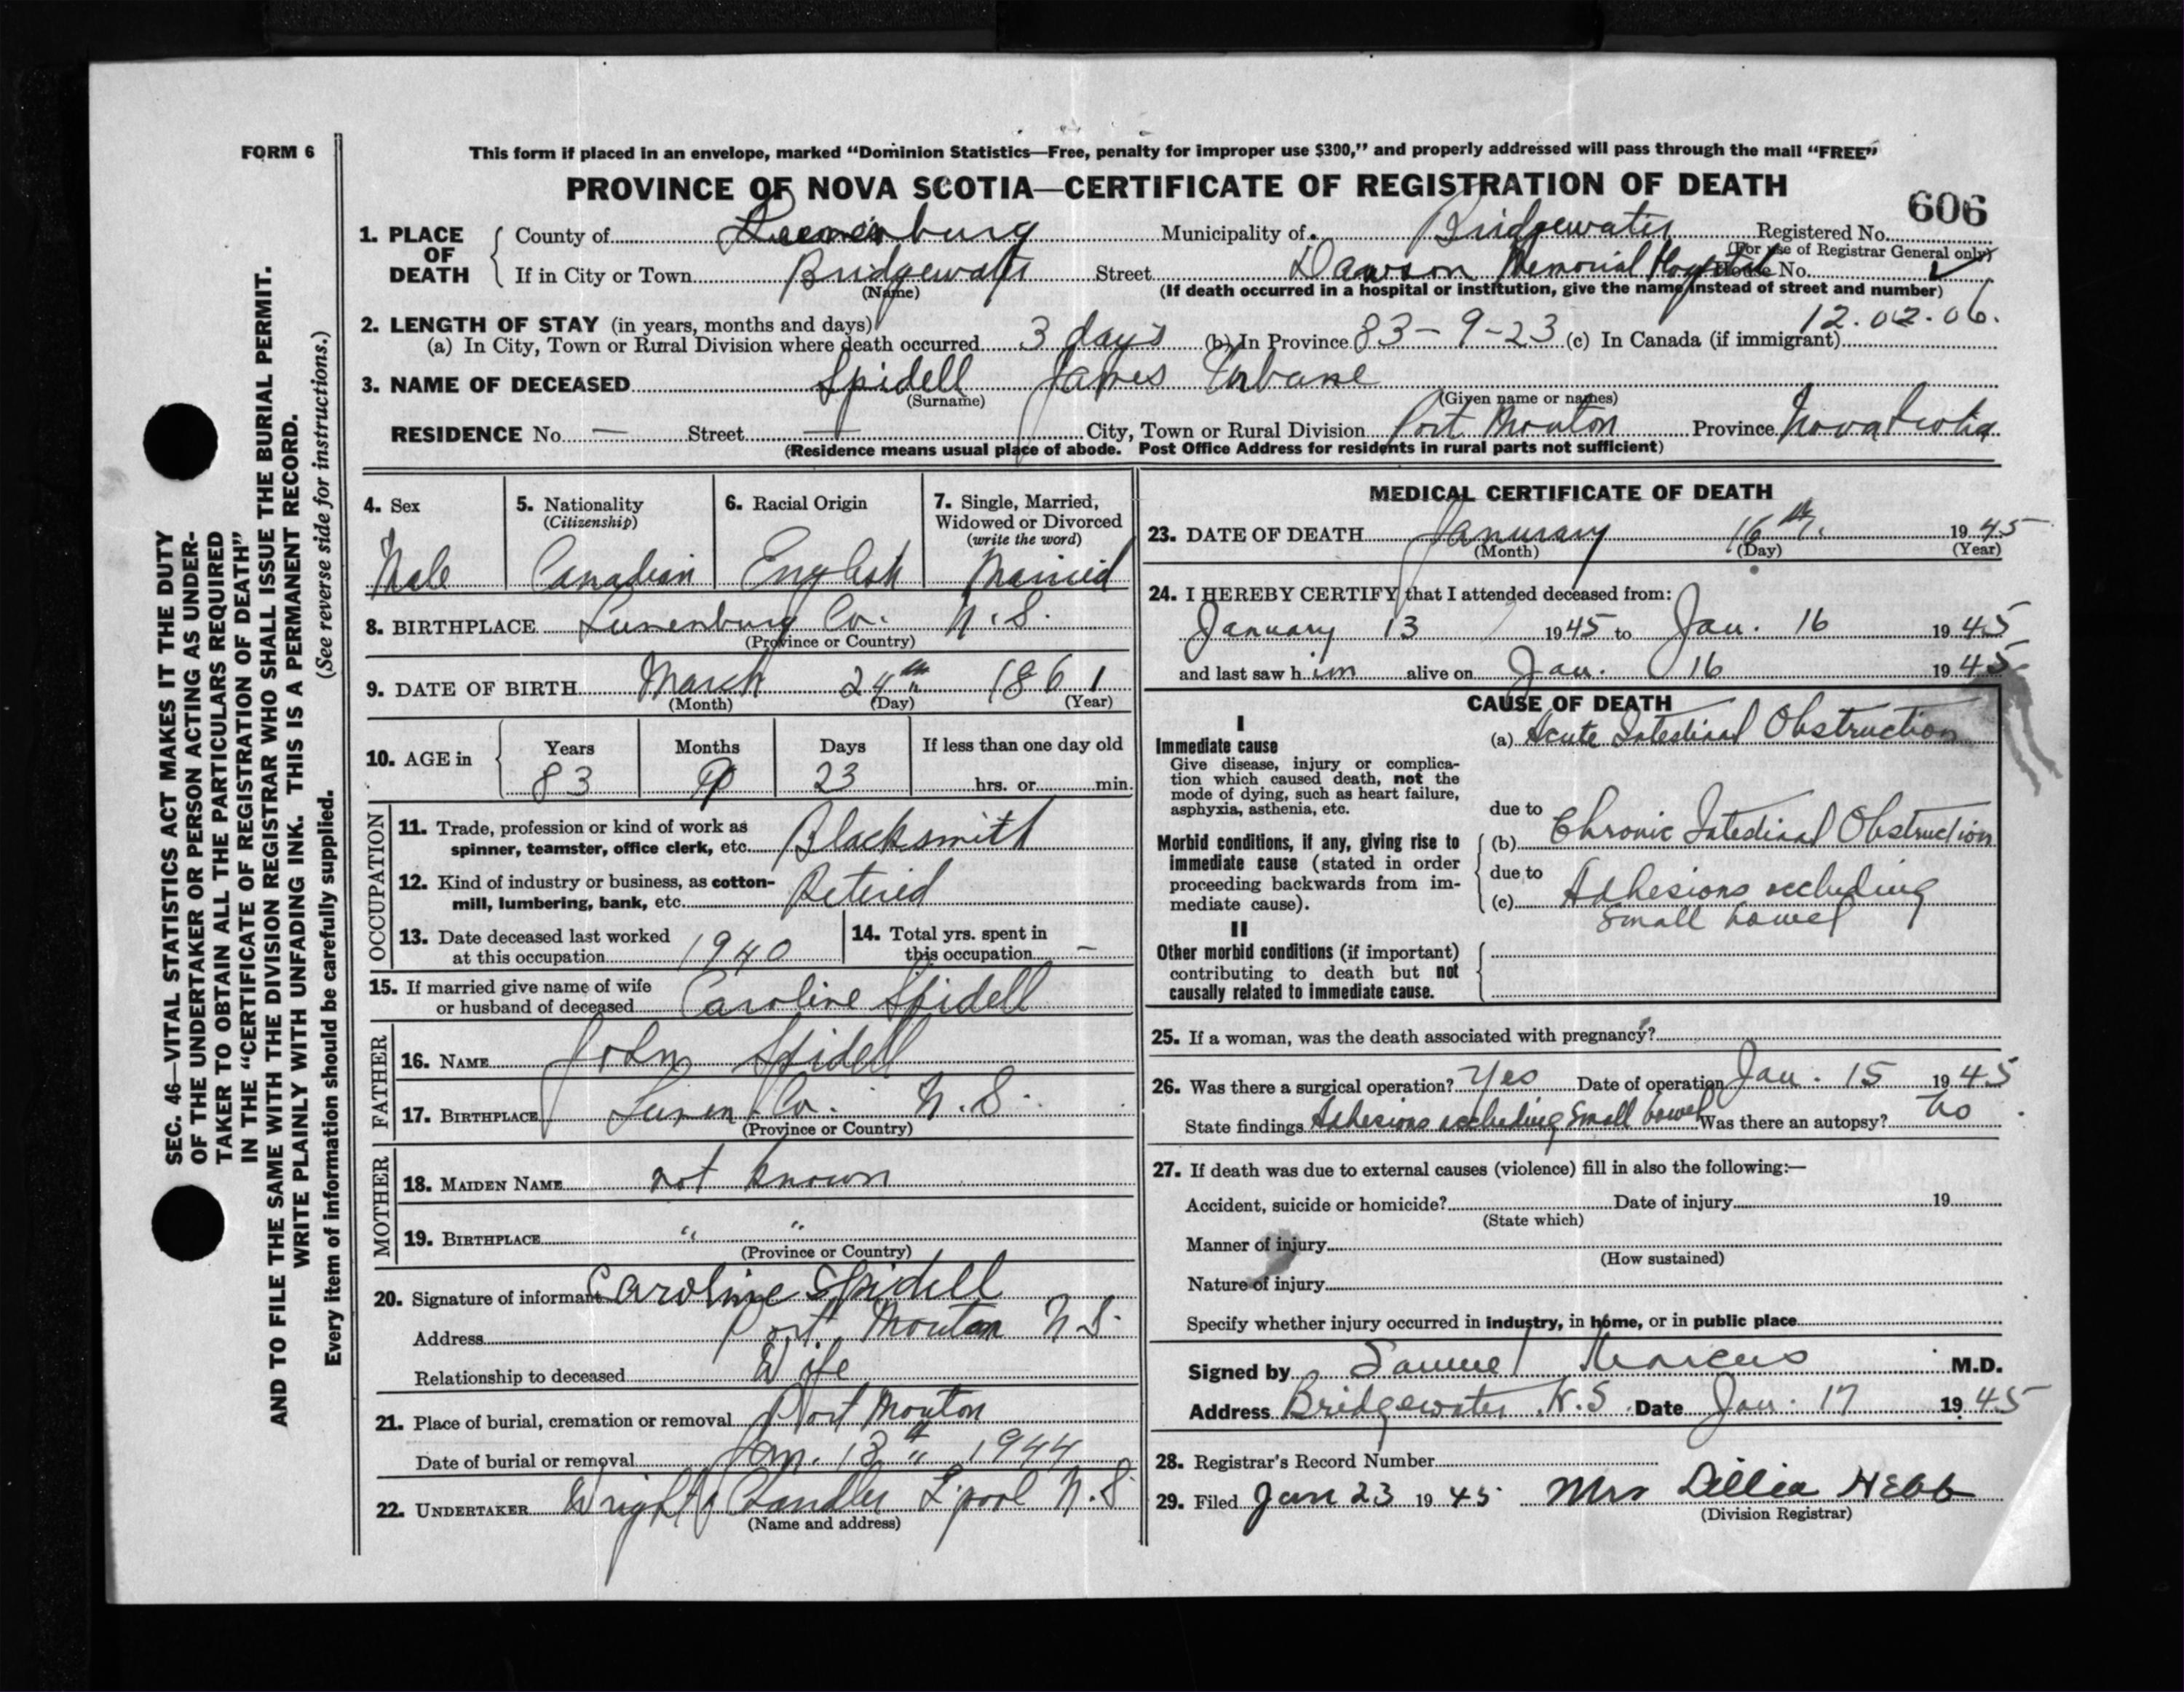 FORM 6
This form if placed in an envelope, marked “Dominion Statistics—Free, penalty for improper use $300,” and properly addressed will pass through the mail “FREE”
PROVINCE OF NOVA SCOTIA—CERTIFICATE OF REGISTRATION OF DEATH
606
1. PLACE OF DEATH { County of Lunenburg Municipality of Bridgewater Registered No.
(For use of Registrar General only)
If in City or Town Bridgewater Street Dawson Memorial Hospital House No.
(Name) (If death occurred in a hospital or institution, give the name instead of street and number)
12.02.06.
2. LENGTH OF STAY (in years, months and days)
(a) In City, Town or Rural Division where death occurred 3 days (b) In Province 83-9-23 (c) In Canada (if immigrant)
3. NAME OF DECEASED Spidell James Urbane
(Surname) (Given name or names)
RESIDENCE No. — Street — City, Town or Rural Division Port Mouton Province Nova Scotia
(Residence means usual place of abode. Post Office Address for residents in rural parts not sufficient)
4. Sex 5. Nationality 6. Racial Origin 7. Single, Married,
(Citizenship) Widowed or Divorced
(write the word)
Male Canadian English Married
8. BIRTHPLACE Lunenburg Co. N.S.
(Province or Country)
9. DATE OF BIRTH March 24th 1861
(Month) (Day) (Year)
10. AGE in { Years Months Days If less than one day old
83 9 23 hrs. or min.
OCCUPATION
11. Trade, profession or kind of work as
spinner, teamster, office clerk, etc. Blacksmith
12. Kind of industry or business, as cotton-
mill, lumbering, bank, etc. Retired
13. Date deceased last worked
at this occupation 1940
14. Total yrs. spent in
this occupation —
15. If married give name of wife
or husband of deceased Caroline Spidell
FATHER
16. NAME John Spidell
17. BIRTHPLACE Lunen. Co. N.S.
(Province or Country)
MOTHER
18. MAIDEN NAME not known
19. BIRTHPLACE " "
(Province or Country)
20. Signature of informant Caroline Spidell
Address Port Mouton N S.
Relationship to deceased Wife
21. Place of burial, cremation or removal Port Mouton
Date of burial or removal Jan. 18th 1944
22. UNDERTAKER Wright Chandler L'pool N.S
(Name and address)
MEDICAL CERTIFICATE OF DEATH
23. DATE OF DEATH Janurary 16th. 1945
(Month) (Day) (Year)
24. I HEREBY CERTIFY that I attended deceased from:
January 13 1945 to Jan. 16 1945
and last saw him alive on Jan. 16 1945
CAUSE OF DEATH
I
Immediate cause
Give disease, injury or complica-
tion which caused death, not the
mode of dying, such as heart failure,
asphyxia, asthenia, etc.
(a) Acute Intestinal Obstruction
due to
Morbid conditions, if any, giving rise to
immediate cause (stated in order
proceeding backwards from im-
mediate cause).
(b) Chronic Intestinal Obstruction
due to
(c) Adhesions occluding
small bowel
II
Other morbid conditions (if important)
contributing to death but not
causally related to immediate cause.
25. If a woman, was the death associated with pregnancy?
26. Was there a surgical operation? Yes Date of operation Jan. 15 1945
State findings Adhesions occluding small bowel Was there an autopsy? No
27. If death was due to external causes (violence) fill in also the following:—
Accident, suicide or homicide? Date of injury 19
(State which)
Manner of injury
(How sustained)
Nature of injury
Specify whether injury occurred in industry, in home, or in public place
Signed by Samuel Marcus M.D.
Address Bridgewater N.S Date Jan. 17 1945
28. Registrar's Record Number
29. Filed Jan 23 1945 Mrs Lillia Hebb
(Division Registrar)
SEC. 46—VITAL STATISTICS ACT MAKES IT THE DUTY
OF THE UNDERTAKER OR PERSON ACTING AS UNDER-
TAKER TO OBTAIN ALL THE PARTICULARS REQUIRED
IN THE “CERTIFICATE OF REGISTRATION OF DEATH”
AND TO FILE THE SAME WITH THE DIVISION REGISTRAR WHO SHALL ISSUE THE BURIAL PERMIT.
WRITE PLAINLY WITH UNFADING INK. THIS IS A PERMANENT RECORD.
Every item of information should be carefully supplied. (See reverse side for instructions.)